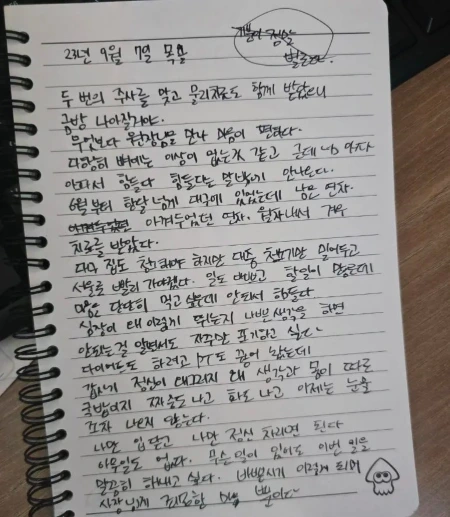 기분이 정말
별로다.
23년 9월 7일 목요일
두 번의 주사를 맞고 물리치료도 함께 받았으니
금방 나아질거야.
무엇보다 원장님을 만나 마음이 편하다.
다행히 뼈에는 이상이 없는것 같고 근데 너무 아프다
아파서 힘들다 힘들다는 말밖에 안나온다.
6월부터 한달 넘게 대구에 있었는데 남은 연차
아껴두었던 연차. 월차내서 겨우
치료를 받았다.
다음 짐도 챙겨야 하지만 대충 챙기만 밀어두고
서울로 빨리 가야했다. 일도 바쁘고 할일이 많은데
마음을 단단히 먹고 싶은데 안되서 힘들다
심장이 왜이렇게 뛰는지 나쁜생각을 하면
안되는걸 알면서도 자꾸만 포기하고 싶다
다이어트도 하려고 PT도 끊어 놨는데
갑자기 정신이 왜그러지 왜 생각과 몸이 따로
국밥이지 짜증도나고 화도 나고 이제는 눈물
조차 나오지 않는다.
나만 입닫고 나만 정신 차리면 된다
아무일도 없다. 무슨일이 있어도 이번 일을
말끔히 해내고 싶다. 바쁜시기 이렇게 되어
사장님께 죄송한 마음 뿐이다